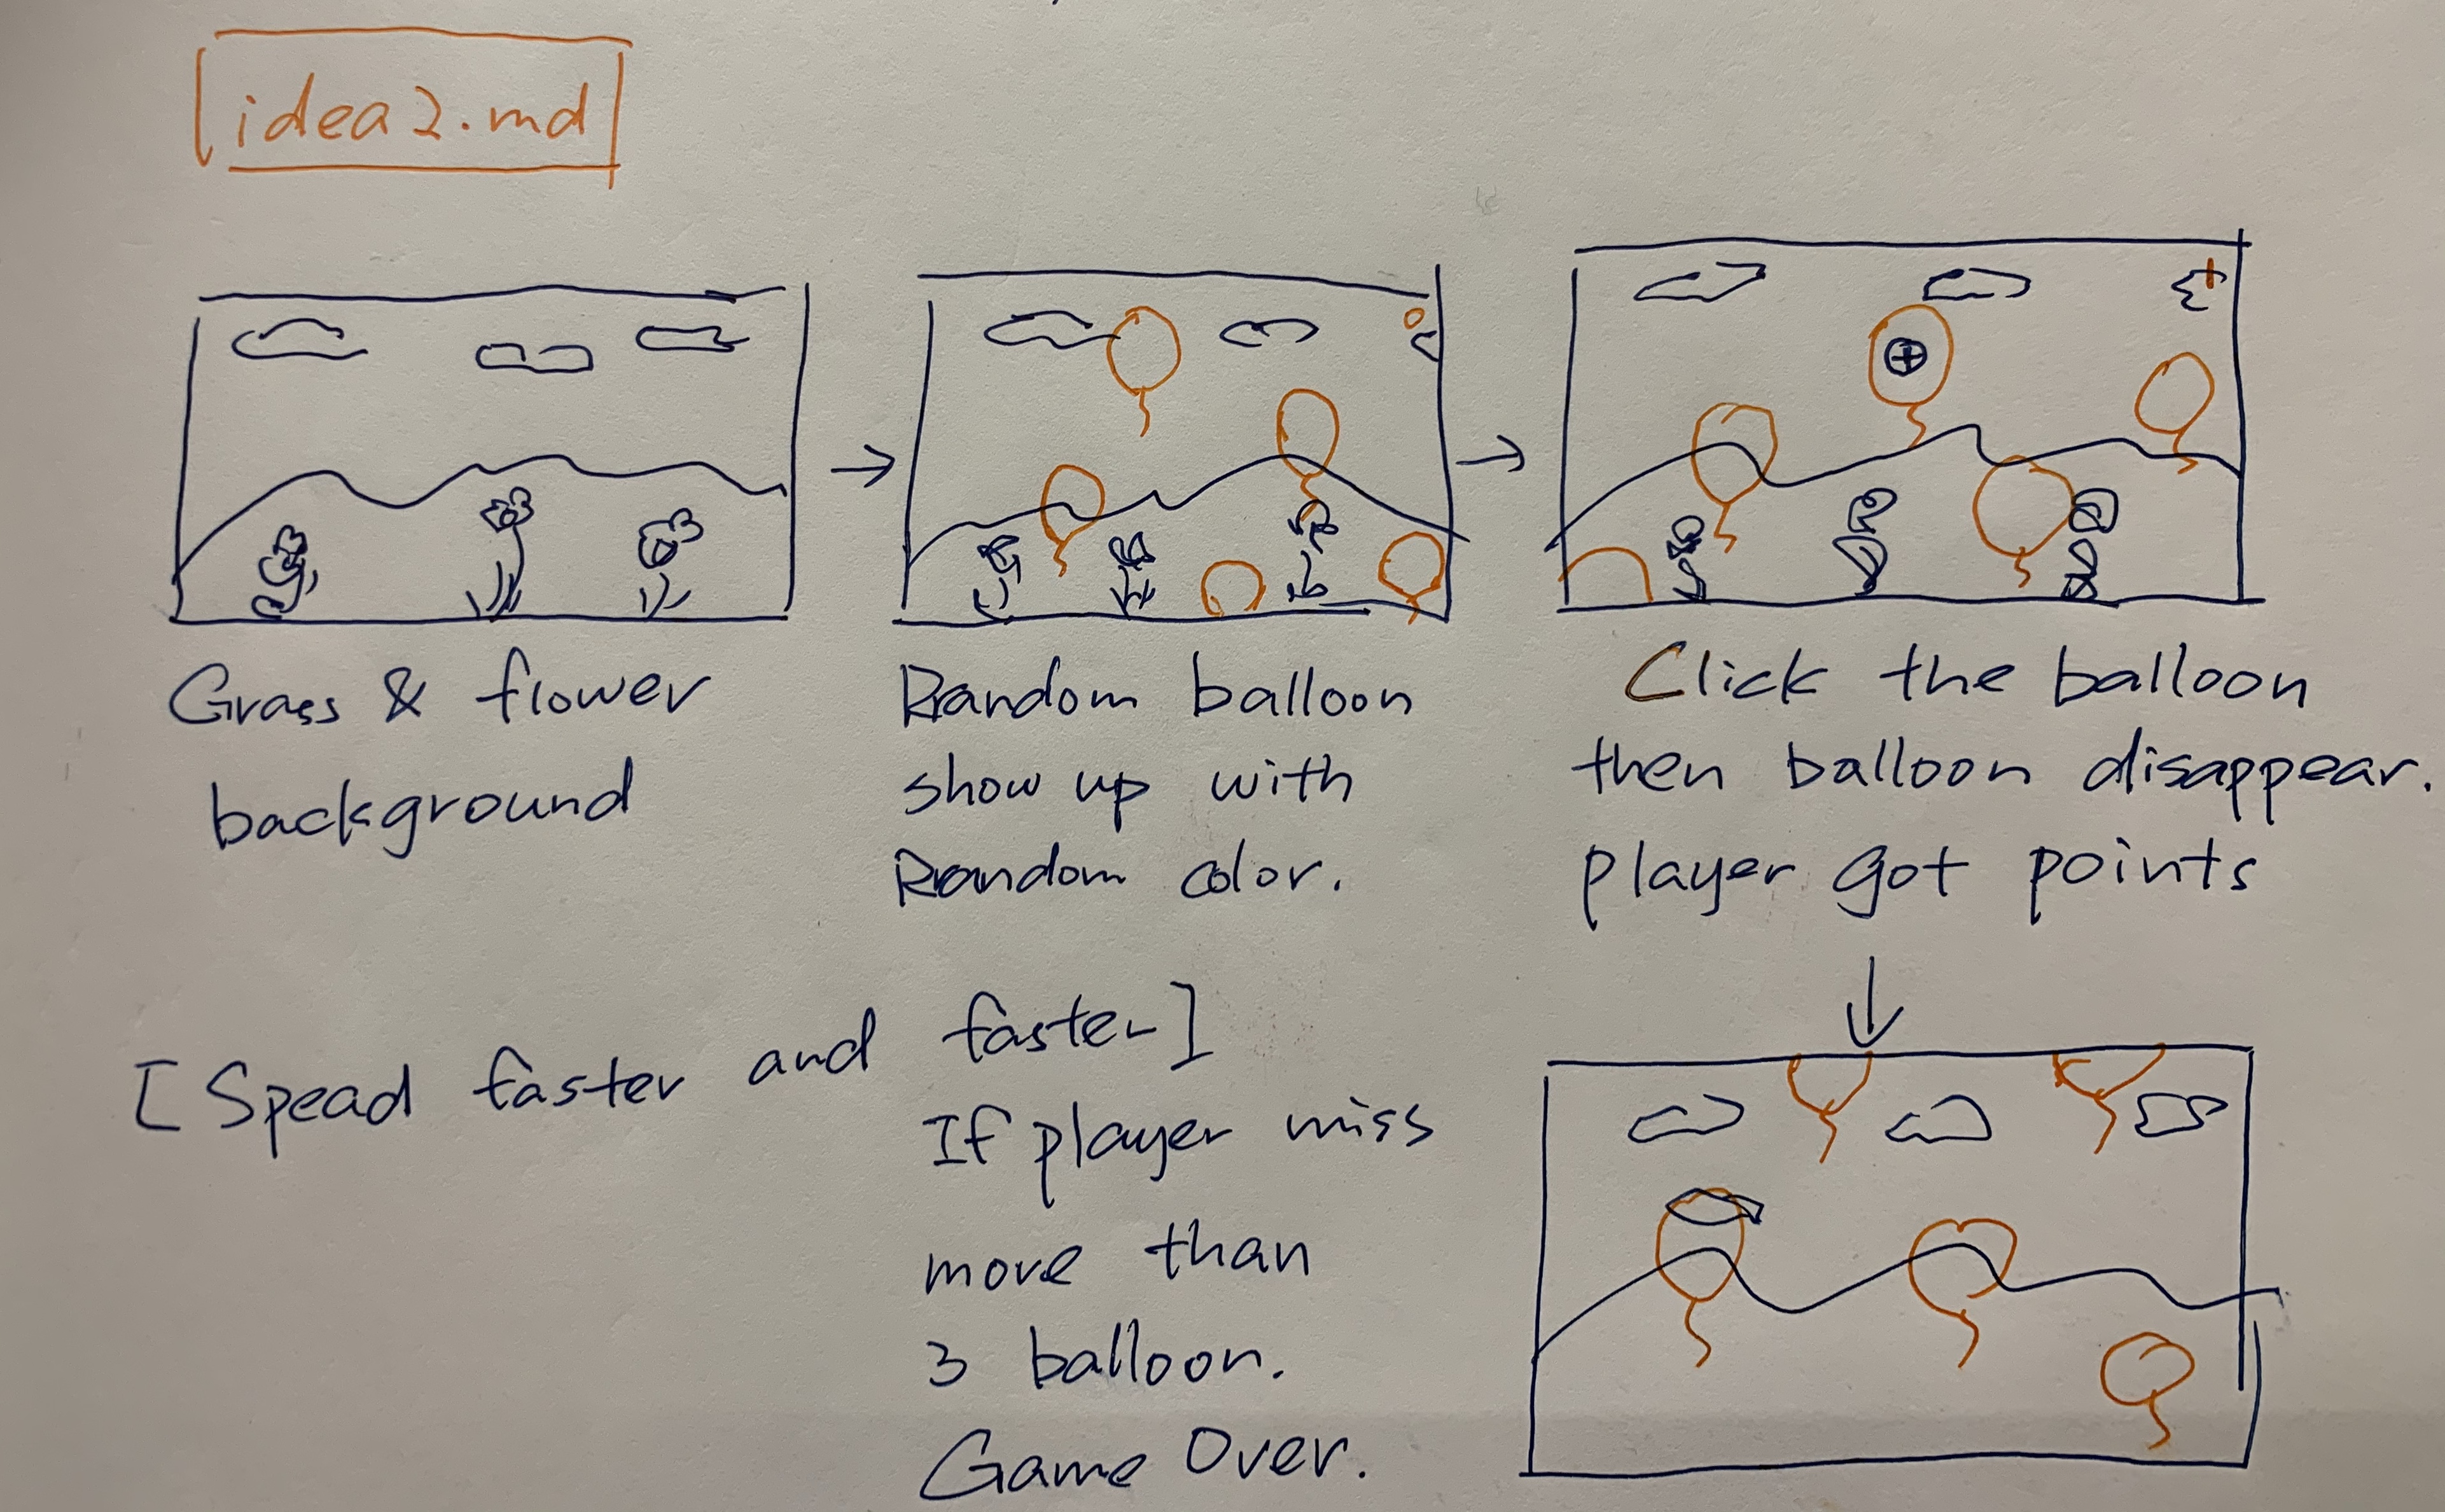 idea2.md
Grass & flower
background
Random balloon
show up with
Random color.
Click the balloon
then balloon disappear.
player got points
[Spead faster and faster]
If player miss
more than
3 balloon.
Game Over.